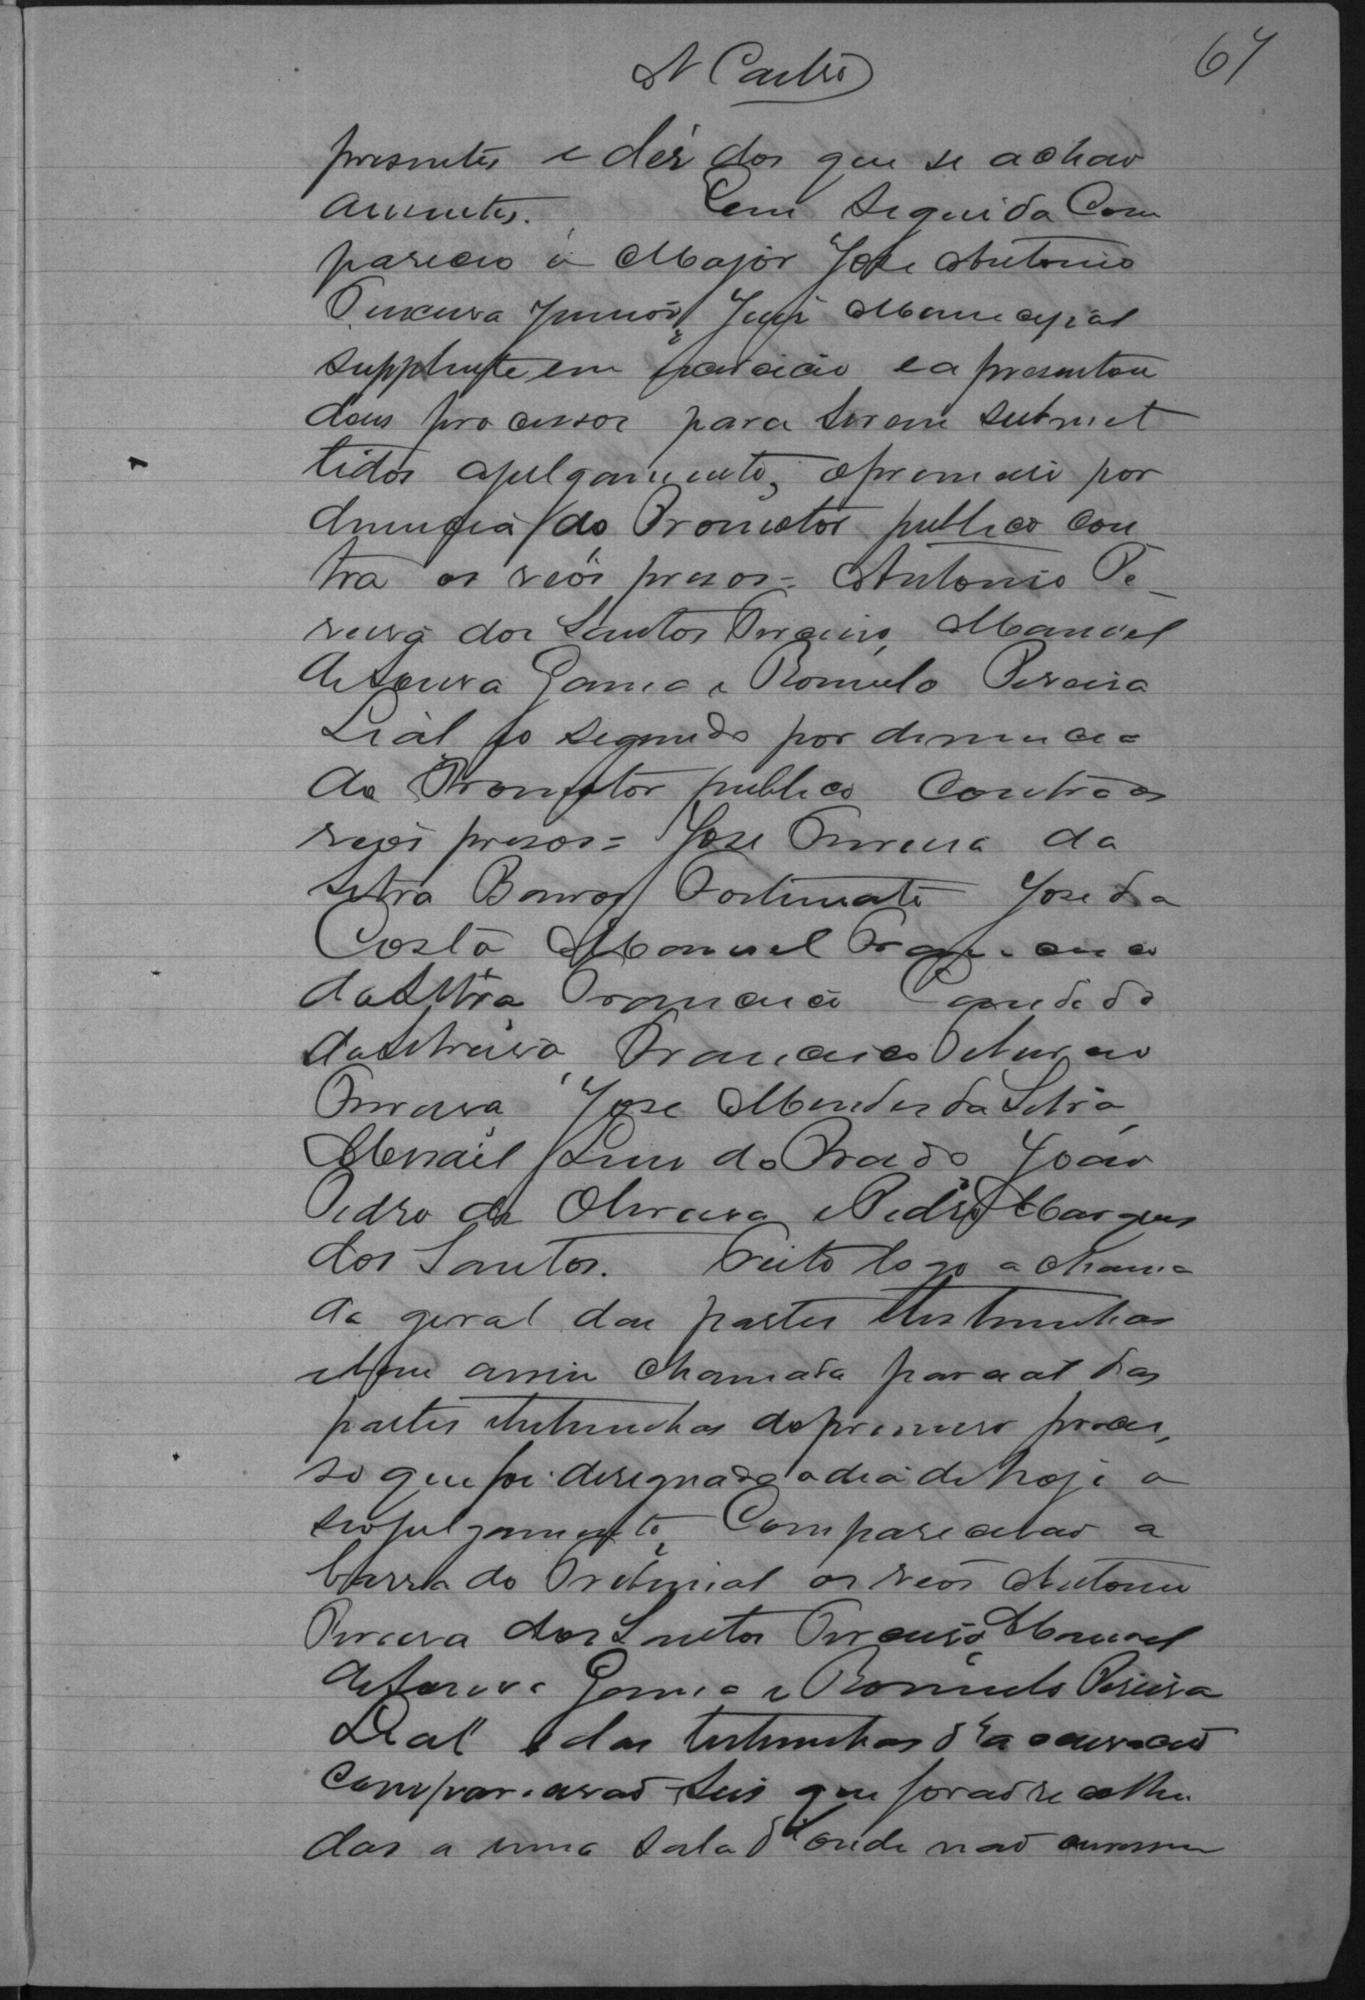 N Castro
67
presentes e des dos que se achao
ausentes. Em seguida Com
pareceo o Major José Antonio
Teixeira Junior, Juiz Municipal
supplente em exercicio e apresentou
dous processos para serem submet
tidos a julgamento, o primeiro por
denuncia do Promotor publico con
tra os reós presos = Antonio Pe
reira dos Santos, Manoel
de Souza Gama e Romulo Pereira
Leal, o segundo por denuncia
do Promotor publico contra os
reós presos = José Ferreira da
Silva Barros, Fortunato José da
Costa Manoel Francisco
da Silva Francisco Candido
da Silveira, Francisco
Ferreira, José Mendes da Silva,
Misael Luis do Prado, João
Pedro de Oliveira e Pedro Marques
dos Santos. Feito logo a chama
da geral das partes testemunhas
e bem assim chamada parcial das
partes e testemunhas do primeiro proces,
so que foi designado o dia de hoje a
seo julgamento, Comparecerao a
barra do Tribunal os reós Antonio
Pereira dos Santos, Manoel
de Souza Gama e Romulo Pereira
Leal e das testemunhas da accusacao
comparecerao seis que forao recolhi
das a uma sala d'onde nao ouvissem